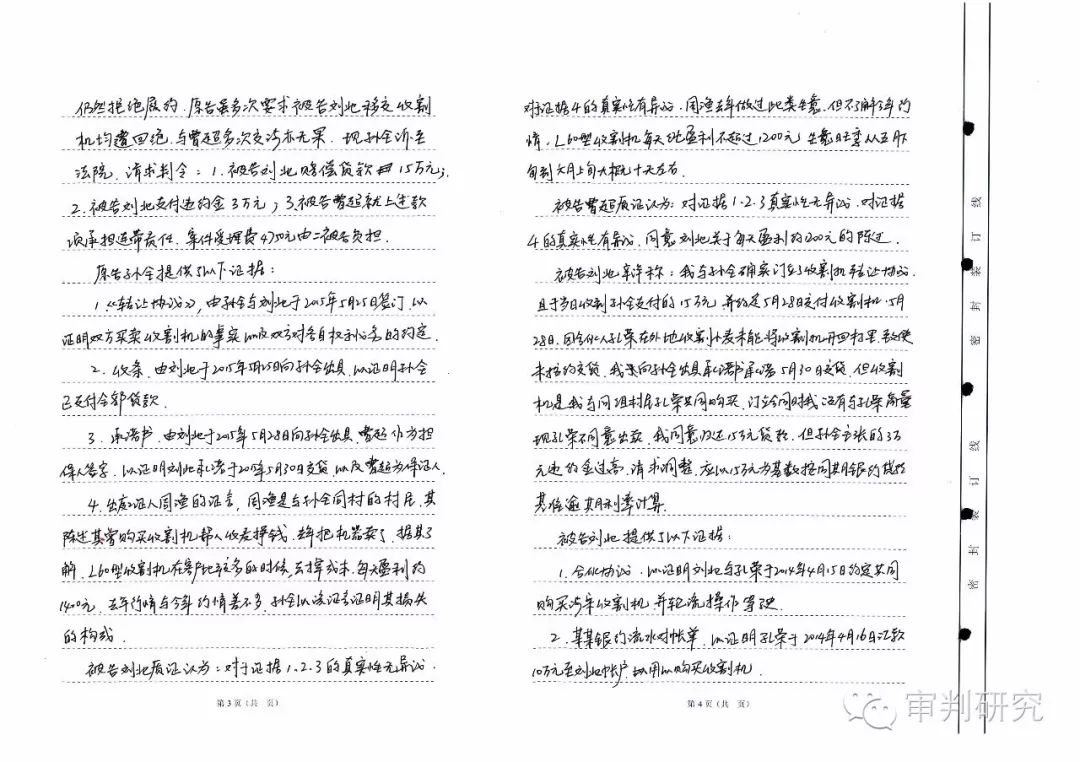 仍然拒绝履约。原告虽多次要求被告刘北移交收割
机均遭回绝,与曹超多次交涉亦无果。现孙全诉至
法院,请求判令:1.被告刘北赔偿货款15万元;
2.被告刘北支付违约金3万元;3.被告曹超就上述款
项承担连带责任。案件受理费4750元由二被告负担。
原告孙全提供了以下证据:
1.《转让协议》,由孙全与刘北于2015年5月25日签订,以
证明双方买卖收割机的事实以及双方对各自权利义务的约定。
2.收条,由刘北于2015年5月25日向孙全出具,以证明孙全
已支付全部货款。
3.承诺书,由刘北于2015年5月28日向孙全出具,曹超作为担
保人签字,以证明刘北承诺于2015年5月30日交货,以及曹超为保证人。
4.出庭证人周渔的证言,周渔是与孙全同村的村民,其
陈述其曾购买收割机帮人收麦挣钱,去年把机器卖了,据其了
解,L60型收割机在客户比较多的时候,去掉成本,每天盈利约
1400元,去年行情与今年行情差不多,孙全以该证言证明其损失
的构成。
被告刘北质证认为:对于证据1、2、3的真实性无异议,
第3页(共 页)
对证据4的真实性有异议,周渔去年做过此类生意,但不了解今年行
情,L60型收割机每天纯盈利不超过1200元,生意旺季从五月下
旬到六月上旬大概九十天左右。
被告曹超质证认为:对证据1、2、3真实性无异议,对证据
4的真实性有异议,同意刘北关于每天盈利约1200元的陈述。
被告刘北辩称:我与孙全确实订立了收割机转让协议,
且于当日收到孙全支付的15万元,并约定5月28日交付收割机。5月
28日,因合伙人孔荣在外地收割小麦未能将收割机开回村里,致使
未按约交货,我就向孙全出具承诺书承诺5月30日交货。但收割
机是我与同组村民孔荣共同购买,订立合同时我没有与孔荣商量,
现孔荣不同意出卖,我同意归还15万元货款,但孙全主张的3万
元违约金过高,请求调整,应以15万元为基数按同期银行贷款
基准逾期利率计算。
被告刘北提供了以下证据:
1.合伙协议,以证明刘北与孔荣于2014年4月15日约定共同
购买涉案收割机,并轮流操作驾驶。
2.某某银行流水对帐单,以证明孔荣于2014年4月16日汇款
10万元至刘北帐户,以用以购买收割机。
第4页(共 页)
密 封 装 订 线 密 封 装 订 线
审判研究